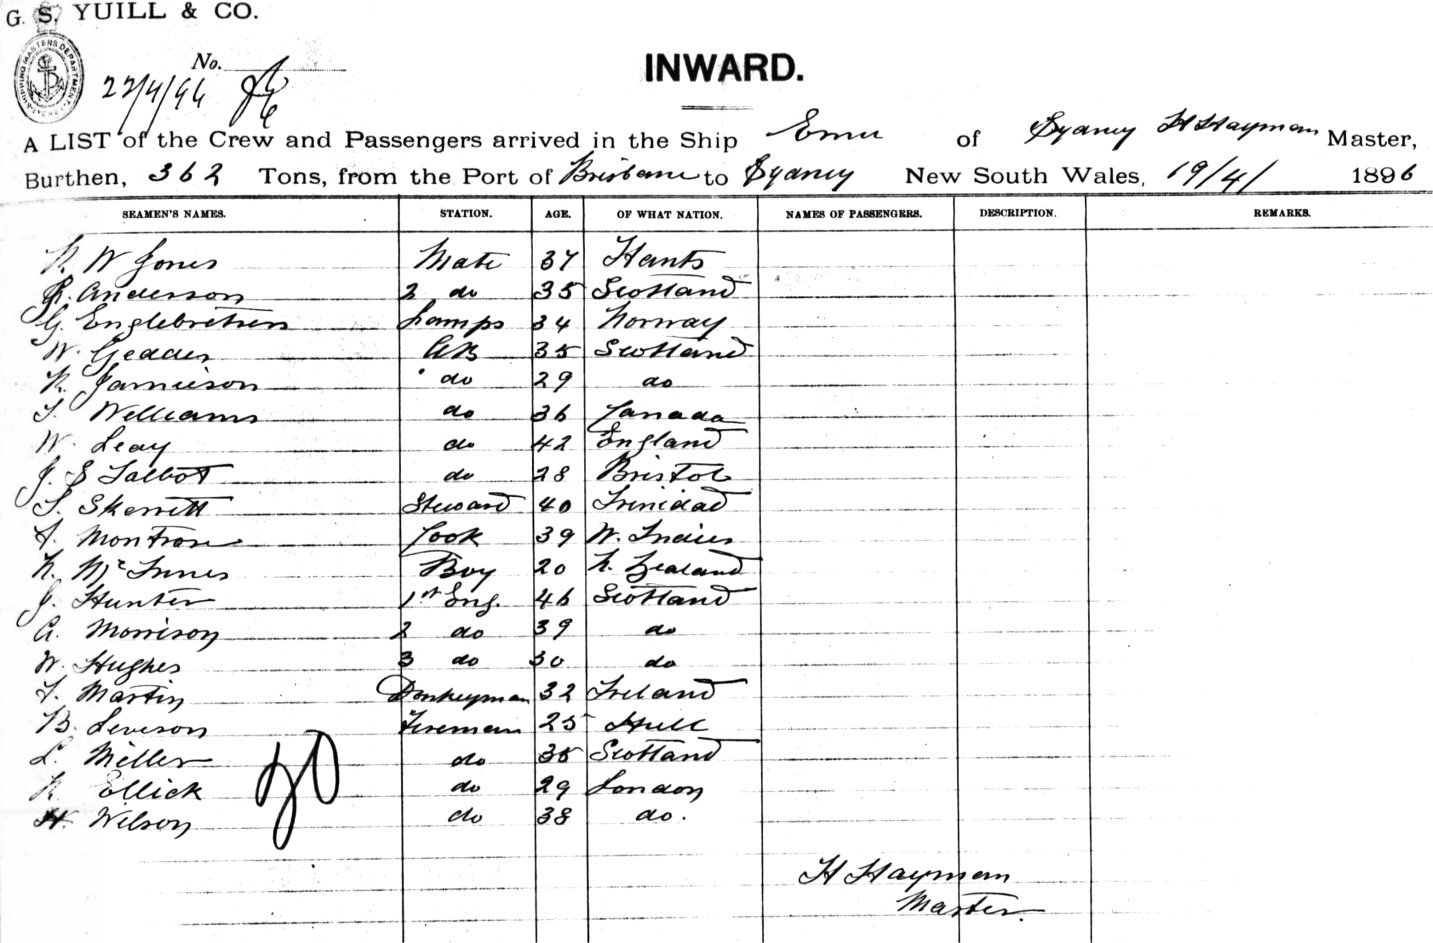 G. S. YUILL & CO.
SHIPPING MASTERS DEPARTMENT
No.
22/4/96
INWARD.
A LIST of the Crew and Passengers arrived in the Ship Emu of Sydney H Hayman Master,
Burthen, 362 Tons, from the Port of Brisbane to Sydney New South Wales, 19/4/ 1896
SEAMEN'S NAMES. STATION. AGE. OF WHAT NATION. NAMES OF PASSENGERS. DESCRIPTION. REMARKS.
W Jones Mate 37 Hants
R. Anderson 2 do 35 Scotland
G. Englebretsen Lamps 34 Norway
W. Geddes AB 35 Scotland
R. Jamieson do 29 do
T. Williams do 36 Canada
W. Leay do 42 England
J. S Talbot do 28 Bristol
T. Skerrett Steward 40 Trinidad
Montrose Cook 39 W. Indies
N. McInnes Boy 20 N. Zealand
J. Hunter 1st Eng. 46 Scotland
A. Morrison 2 do 39 do
W. Hughes 3 do 30 do
Martin Donkeyman 32 Ireland
B. Leveson Fireman 25 Hull
L. Miller do 35 Scotland
Ellick do 29 London
H. Wilson do 38 do.
20
H Hayman
Master.